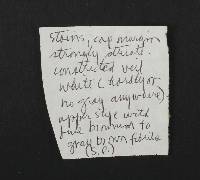 stains, cap margin
strongly striate.
constricted veil
white (hardly or
no gray anywhere)
upper stipe with
fine brownish to
gray brown fibrils
(S.O.)